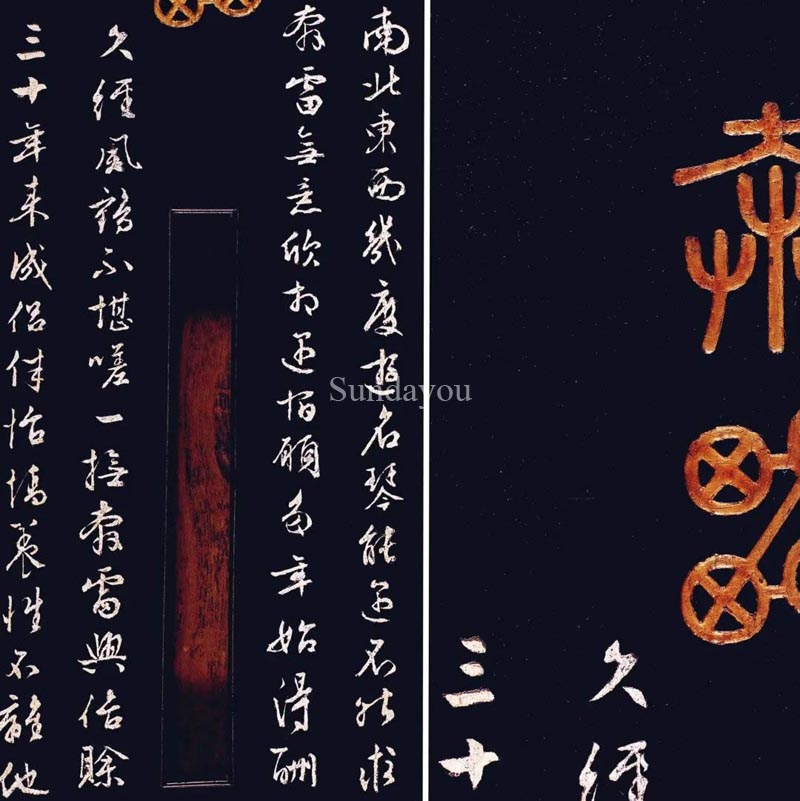 南北東西幾度搜名琴能遇不求
春雷無意欣相遇宿願多年始得酬
久經風鶴不堪嗟一撫春雷興倍賒
三十年來成侶伴怡情養性不離他
久經
三十
Sundayou